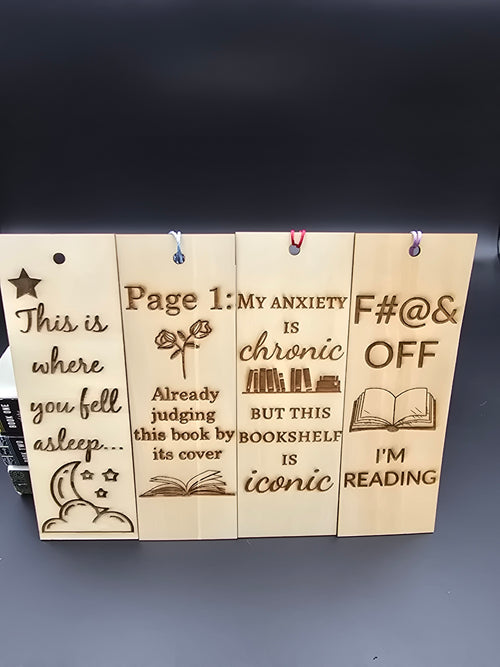 This is
where
you fell
asleep...
Page 1:
Already
judging
this book by
its cover
MY ANXIETY
IS
chronic
BUT THIS
BOOKSHELF
IS
iconic
F#@&
OFF
I'M
READING